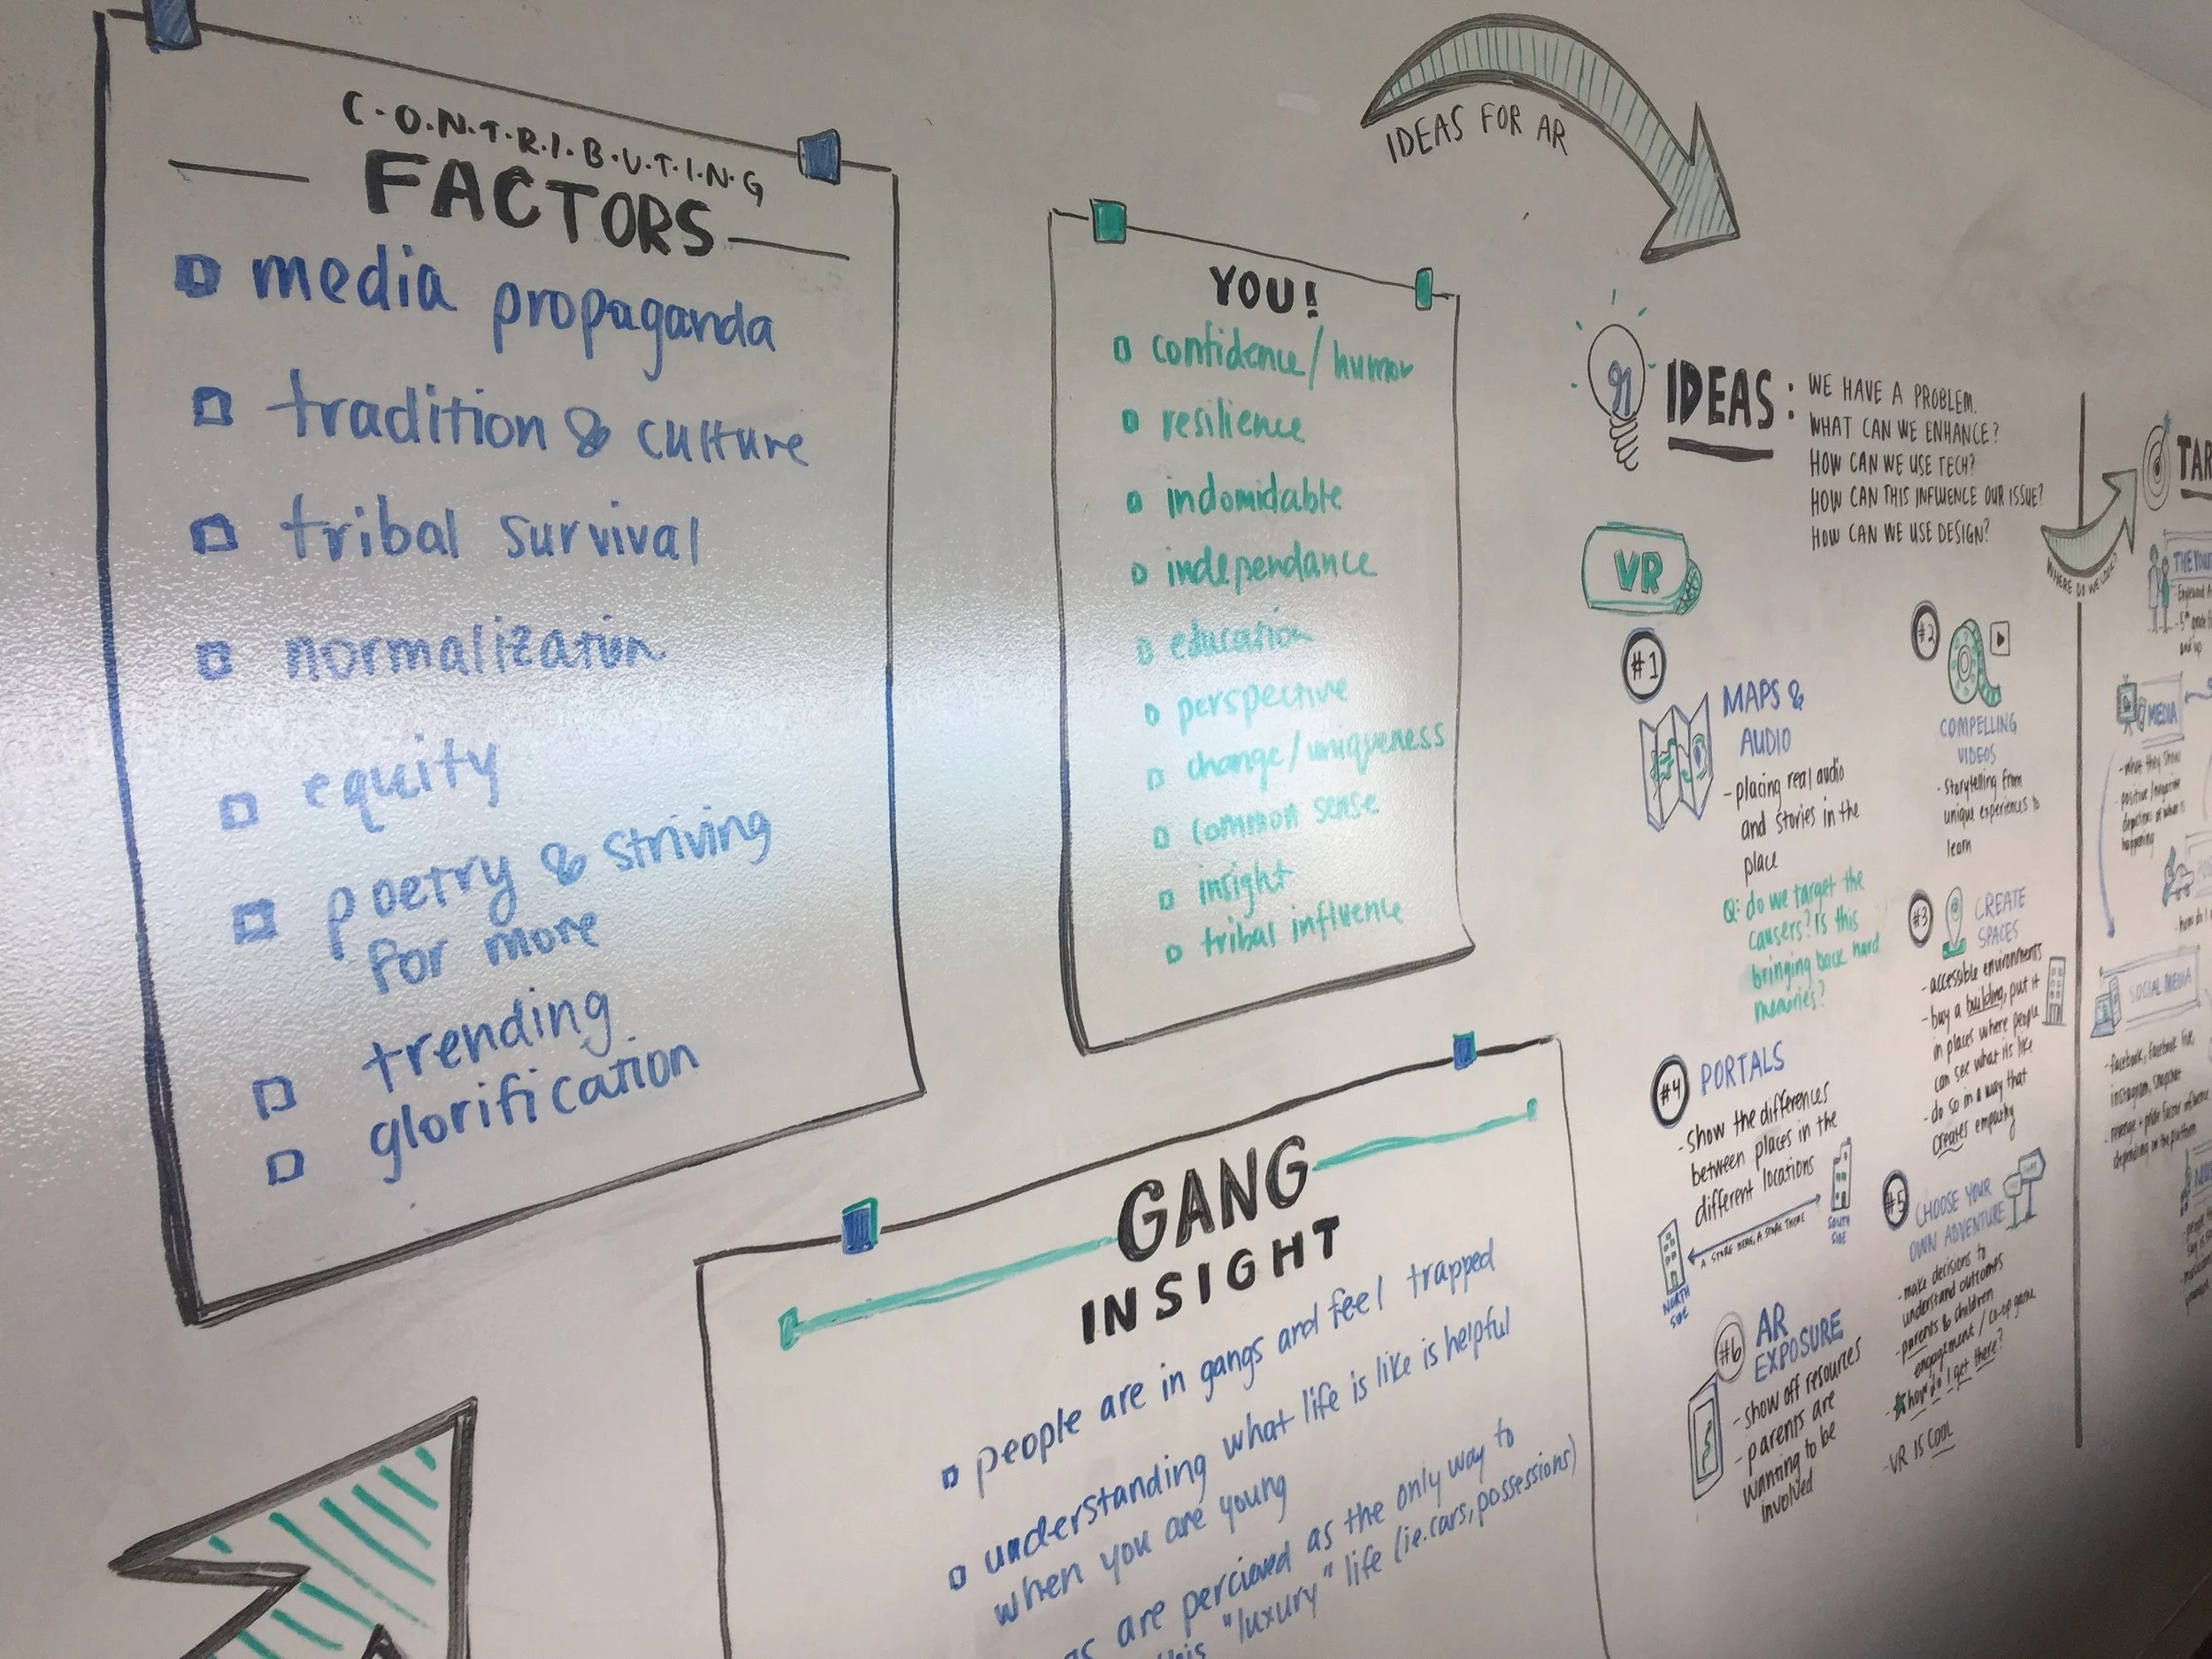 C.O.N.T.R.I.B.U.T.I.N.G
FACTORS
media propaganda
tradition & culture
tribal survival
normalization
equity
poetry & striving
for more
trending
glorification
YOU!
confidence/humor
resilience
indomidable
independance
education
perspective
change/uniqueness
common sense
insight
tribal influence
GANG
INSIGHT
people are in gangs and feel trapped
understanding what life is like is helpful
when you are young
are percieved as the only way to
this "luxury" life (i.e. cars, possessions)
IDEAS FOR AR
IDEAS:
WE HAVE A PROBLEM.
WHAT CAN WE ENHANCE?
HOW CAN WE USE TECH?
HOW CAN THIS INFLUENCE OUR ISSUE?
HOW CAN WE USE DESIGN?
VR
#1
MAPS &
AUDIO
- placing real audio
and stories in the
place
Q: do we target the
causers? Is this
bringing back hard
memories?
#2
COMPELLING
VIDEOS
- storytelling from
unique experiences to
learn
#3
CREATE
SPACES
- accessible environments
- buy a building, put it
in places where people
can see what its like
- do so in a way that
creates empathy
#4
PORTALS
- show the differences
between places in the
different locations
A STORE HERE, A STORE THERE
NORTH
SIDE
SOUTH
SIDE
#5
CHOOSE YOUR
OWN ADVENTURE
- make decisions to
understand outcomes
- parents & children
engagement / co-op game
- how do I get there?
- VR IS COOL
#6
AR
EXPOSURE
- show off resources
- parents are
wanting to be
involved
WHERE DO WE
TAR
THE YOU
5th grade
and up
MEDIA
- what they show
- positive/negative
depictions of what is
happening
how do I
SOCIAL MEDIA
- facebook, facebook live,
instagram, snapchat
- revenge + pride factor influence
depending on the platform